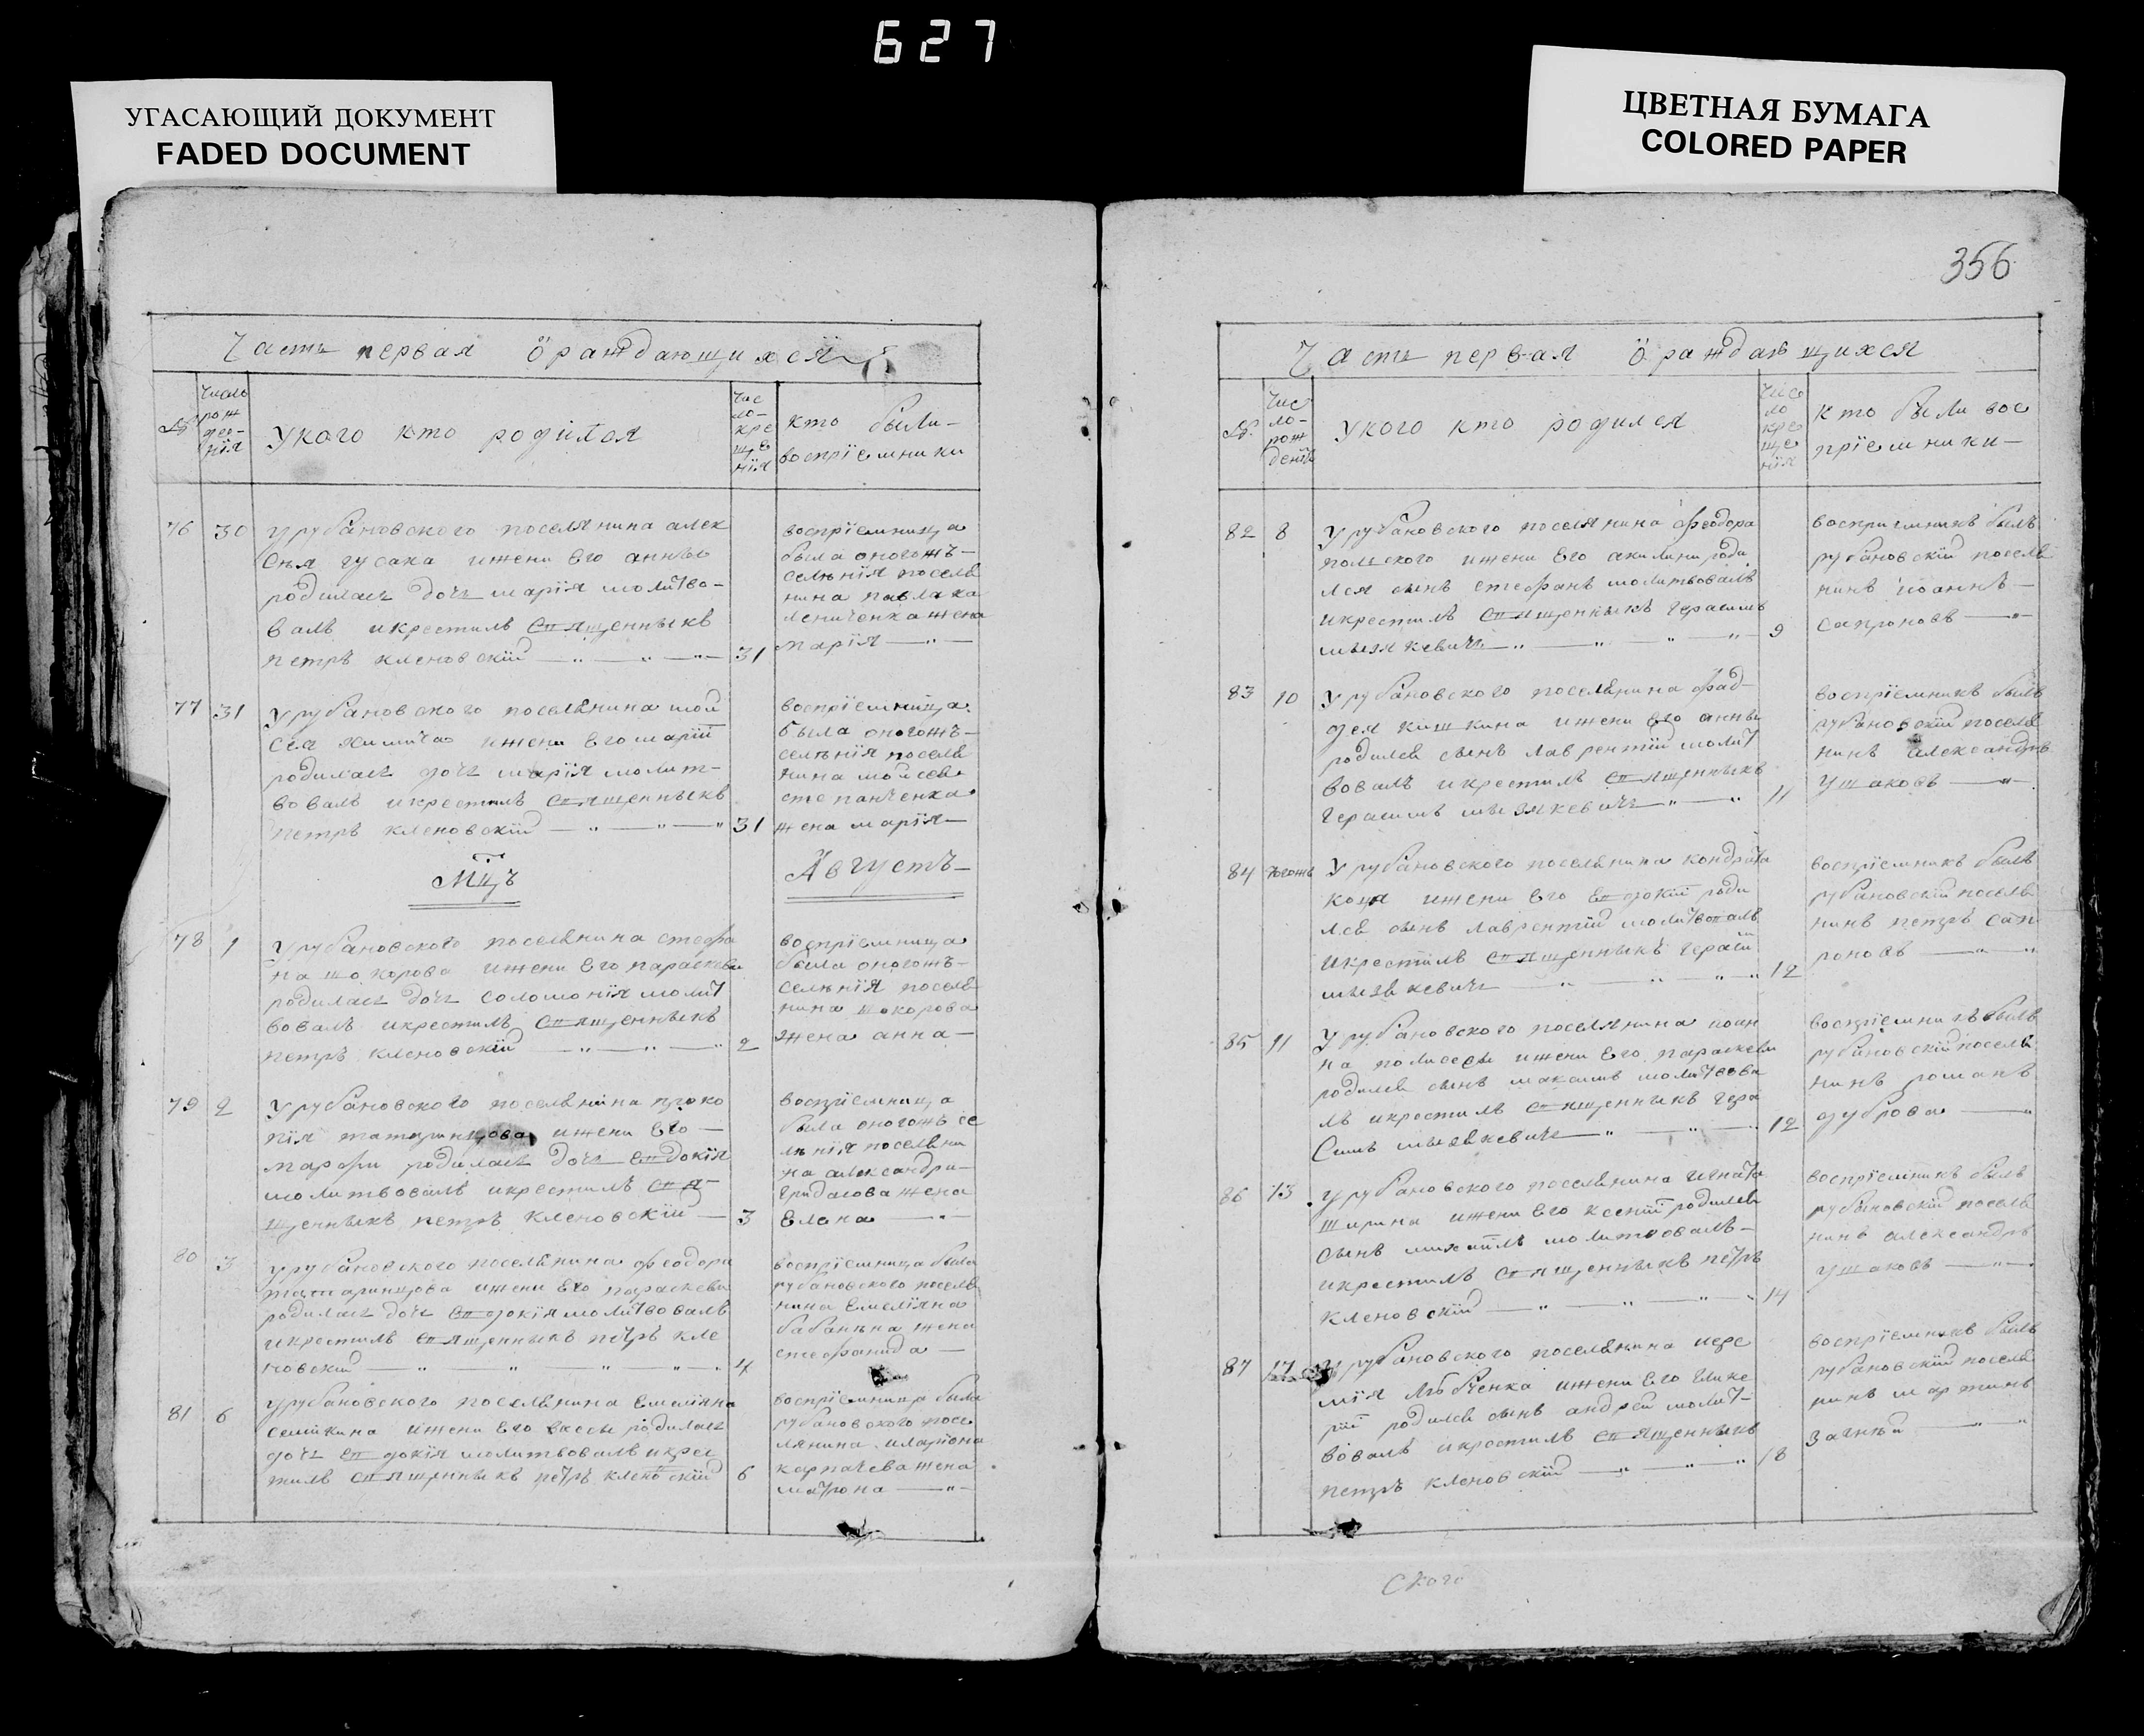 627
УГАСАЮЩИЙ ДОКУМЕНТ
FADED DOCUMENT
ЦВЕТНАЯ БУМАГА
COLORED PAPER
356
Часть первая о раждающихся
Число рож дѣ- нія
У кого кто родился
Чис ло- кре ще нія
кто были- воспріемники
76 30 У рубановского поселянина алек
сѣя гусака и жени его анны
родилась дочь марія молитво-
валъ и крестилъ священникъ
петръ кленовскій 31
воспріемница
была оногожъ-
селѣнія поселя
нина павла ка
лениченка жена
марія
77 31 У рубановского поселянина мой
сея жени его маріи
родилась дочь марія молит-
вовалъ и крестилъ священникъ
петръ кленовскій 31
воспріемница
была оногожъ-
селѣнія поселя
нина мойсея
степанченка
жена марія
Мцъ Августъ
78 1 У рубановского поселянина стефа
на шокорова и жени его параскеви
родилась дочь соломонія молит
вовалъ и крестилъ священникъ
петръ кленовскій 2
воспріемница
была оногожъ-
селѣнія поселя
нина шокорова
жена анна
79 2 У рубановского поселянина проко
пія татаринцова и жени его
марфи родилась дочь евдокія
молитвовалъ и крестилъ свя-
щенникъ петръ кленовскій 3
воспріемница
была оногожъ се
лѣнія поселяни
на александра
гридасова жена
елена
80 3 У рубановского поселянина феодора
татаринцова и жени его параскеви
родилась дочь евдокія молитвовалъ
и крестилъ священникъ петръ кле
новскій 4
воспріемница была
рубановского поселя
нина емеліяна
бабанина жена
стефанида
81 6 У рубановского поселянина емеліяна
семікина и жени его вассы родилась
дочь евдокія молитвовалъ и крес
тилъ священникъ петръ кленовскій 6
воспріемница была
рубановского посе
лянина иларіона
карпачева жена
матрона
Часть первая о раждающихся
Чис ло- рож денія
У кого кто родился
Число кре ще нія
кто были вос пріемники-
82 8 У рубановского поселянина феодора
полского и жени его акилини роди
лся сынъ стефанъ молитвовалъ
и крестилъ священникъ герасимъ
мызякевичъ 9
воспріемникъ былъ
рубановскій поселя
нинъ іоаннъ
сапроновъ
83 10 У рубановского поселянина фад-
дея кишкина и жени его анны
родился сынъ лаврентій молит
вовалъ и крестилъ священникъ
герасимъ мызякевичъ 11
воспріемникъ былъ
рубановскій поселя
нинъ александръ
ушаковъ
84 тогожъ У рубановского поселянина кондрата
коця и жени его евдокіи роди
лся сынъ лаврентій молитвовалъ
и крестилъ священникъ гераси
мызякевичъ 12
воспріемникъ былъ
рубановскій поселя
нинъ петръ сап
роновъ
85 11 У рубановского поселянина иоан
на и жени его параскеви
родился сынъ максимъ молитвова
лъ и крестилъ священникъ гера
симъ мызякевичъ 12
воспріемникъ былъ
рубановскій поселя
нинъ романъ
дуброва
86 13 У рубановского поселянина игната
ширина и жени его ксеніи родился
сынъ михаилъ молитвовалъ
и крестилъ священникъ петръ
кленовскій 14
воспріемникъ былъ
рубановскій поселя
нинъ александръ
ушаковъ
87 17 У рубановского поселянина иере
мія и жени его глике
ріи родился сынъ андрей молит-
вовалъ и крестилъ священникъ
петръ кленовскій 18
воспріемникъ былъ
рубановскій поселя
нинъ мартинъ
ского